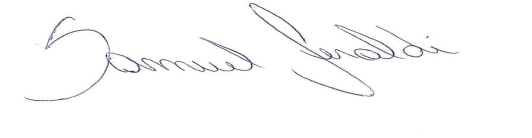 Samuel Geraldi